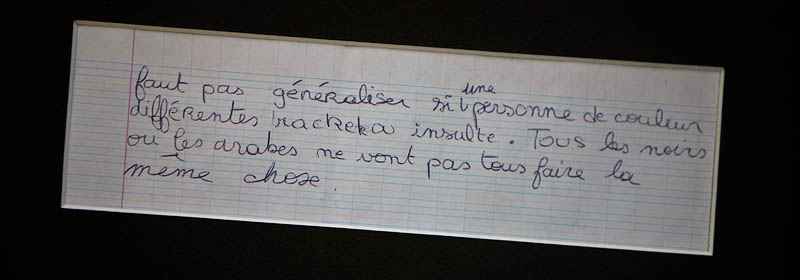 faut pas généraliser si une personne de couleur
différentes racketa insulte. Tous les noirs
ou les arabes ne vont pas tous faire la
même chose.